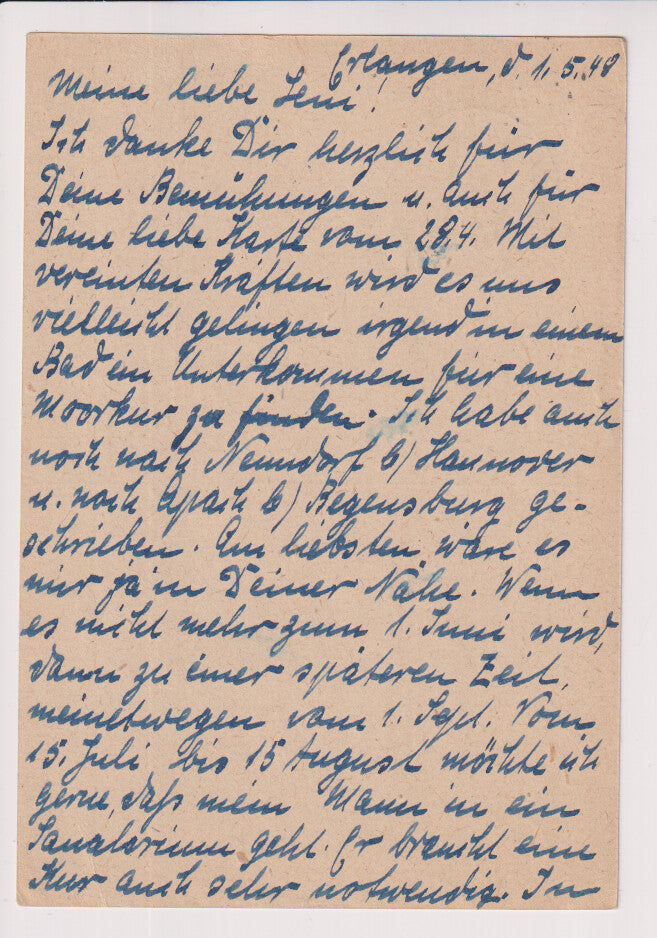 Erlangen, d. 1.5.48
Meine liebe Leni!
Ich danke Dir herzlich für
Deine Bemühungen u. auch für
Deine liebe Karte vom 28.4. Mit
vereinten Kräften wird es uns
vielleicht gelingen irgend in einem
Bad ein Unterkommen für eine
Moorkur zu finden. Ich habe auch
noch nach Nenndorf b/ Hannover
u. nach Abbach b/ Regensburg ge-
schrieben. Am liebsten wäre es
mir ja in Deiner Nähe. Wenn
es nicht mehr zum 1. Juni wird,
dann zu einer späteren Zeit,
meinetwegen vom 1. Sept. Vom
15. Juli bis 15 August möchte ich
gerne, daß mein Mann in ein
Sanatorium geht. Er braucht eine
Kur auch sehr notwendig. In